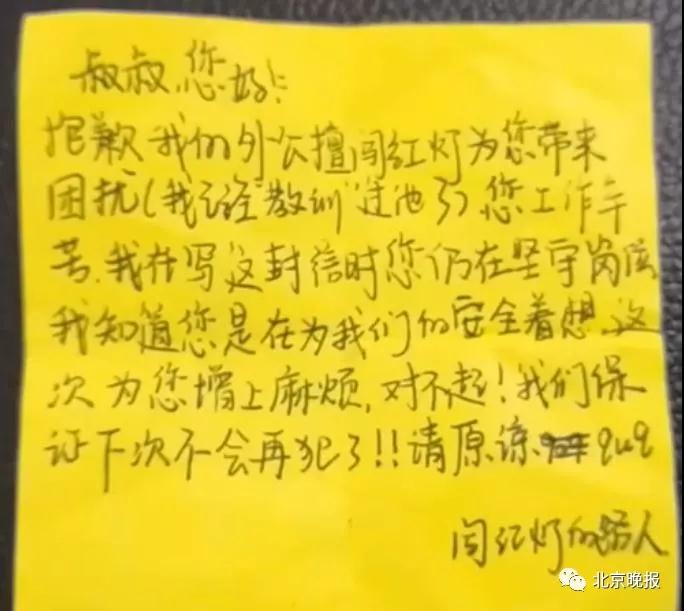 叔叔,您好!
抱歉我们外公擅闯红灯为您带来
困扰(我已经"教训"过他了)您工作辛
苦.我在写这封信时您仍在坚守岗位
我知道您是在为我们的安全着想.这
次为您增上麻烦,对不起!我们保
证下次不会再犯了!!请原谅 quq
闯红灯的路人
北京晚报